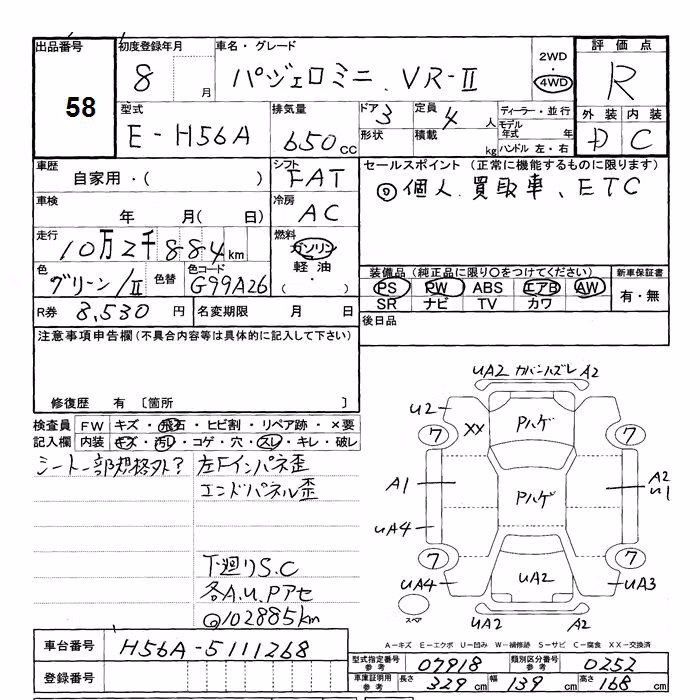 出品番号
58
初度登録年月
8
月
車名・グレード
パジェロミニ VR-II
2WD
・
4WD
評価点
R
外装 内装
D C
型式
E-H56A
排気量
650 cc
ドア 3
形状
定員 4 人
積載 kg
ディーラー・並行
モデル年式 年
ハンドル 左・右
車歴
自家用・( )
シフト
FAT
セールスポイント (正常に機能するものに限ります)
◎個人買取車、ETC
車検
年 月( 日)
冷房
AC
走行
10万2千884km
燃料
ガソリン
軽油
・
( )
色
グリーン/II
色替
色コード
G99A26
装備品(純正品に限り○をつけてください)
PS PW ABS エアB AW
SR ナビ TV カワ
新車保証書
有・無
R券 8,530 円
名変期限 月 日
後日品
注意事項申告欄(不具合内容等は具体的に記入して下さい)
修復歴 有 〔箇所 〕
検査員記入欄
FW キズ・飛石・ヒビ割・リペア跡・×要
内装 キズ・汚レ・コゲ・穴・スレ・キレ・破レ
シート一部規格外?
左Fインパネ歪
エンドパネル歪
下廻りS.C
各A.U.Pアセ
◎102885km
UA2 カバーハズレ A2
U2
XX
Pハゲ
7
7
A1
Pハゲ
A2
U1
UA4
7
7
UA4
UA2
UA3
スペア
UA2
A2
A-キズ E-エクボ U-凹み W-補修跡 S-サビ C-腐食 XX-交換済
車台番号
H56A-5111268
登録番号
型式指定番号 参考 07918
類別区分番号 参考 0252
車庫証明用 参考 長さ 329 cm 幅 139 cm 高さ 168 cm